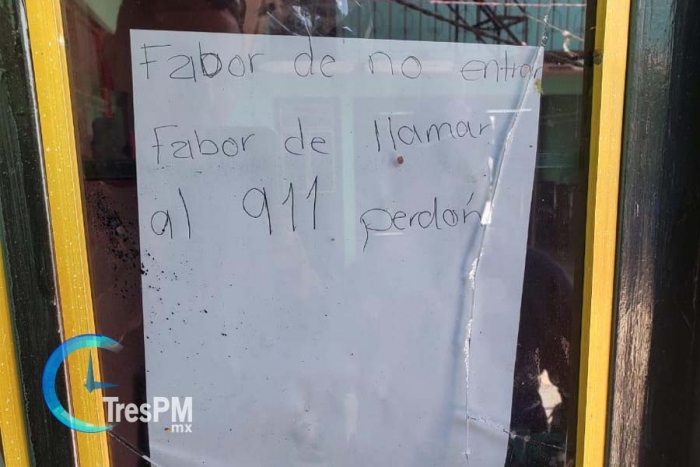 Fabor de no entrar
Fabor de llamar
al 911 perdón
TresPM
mx